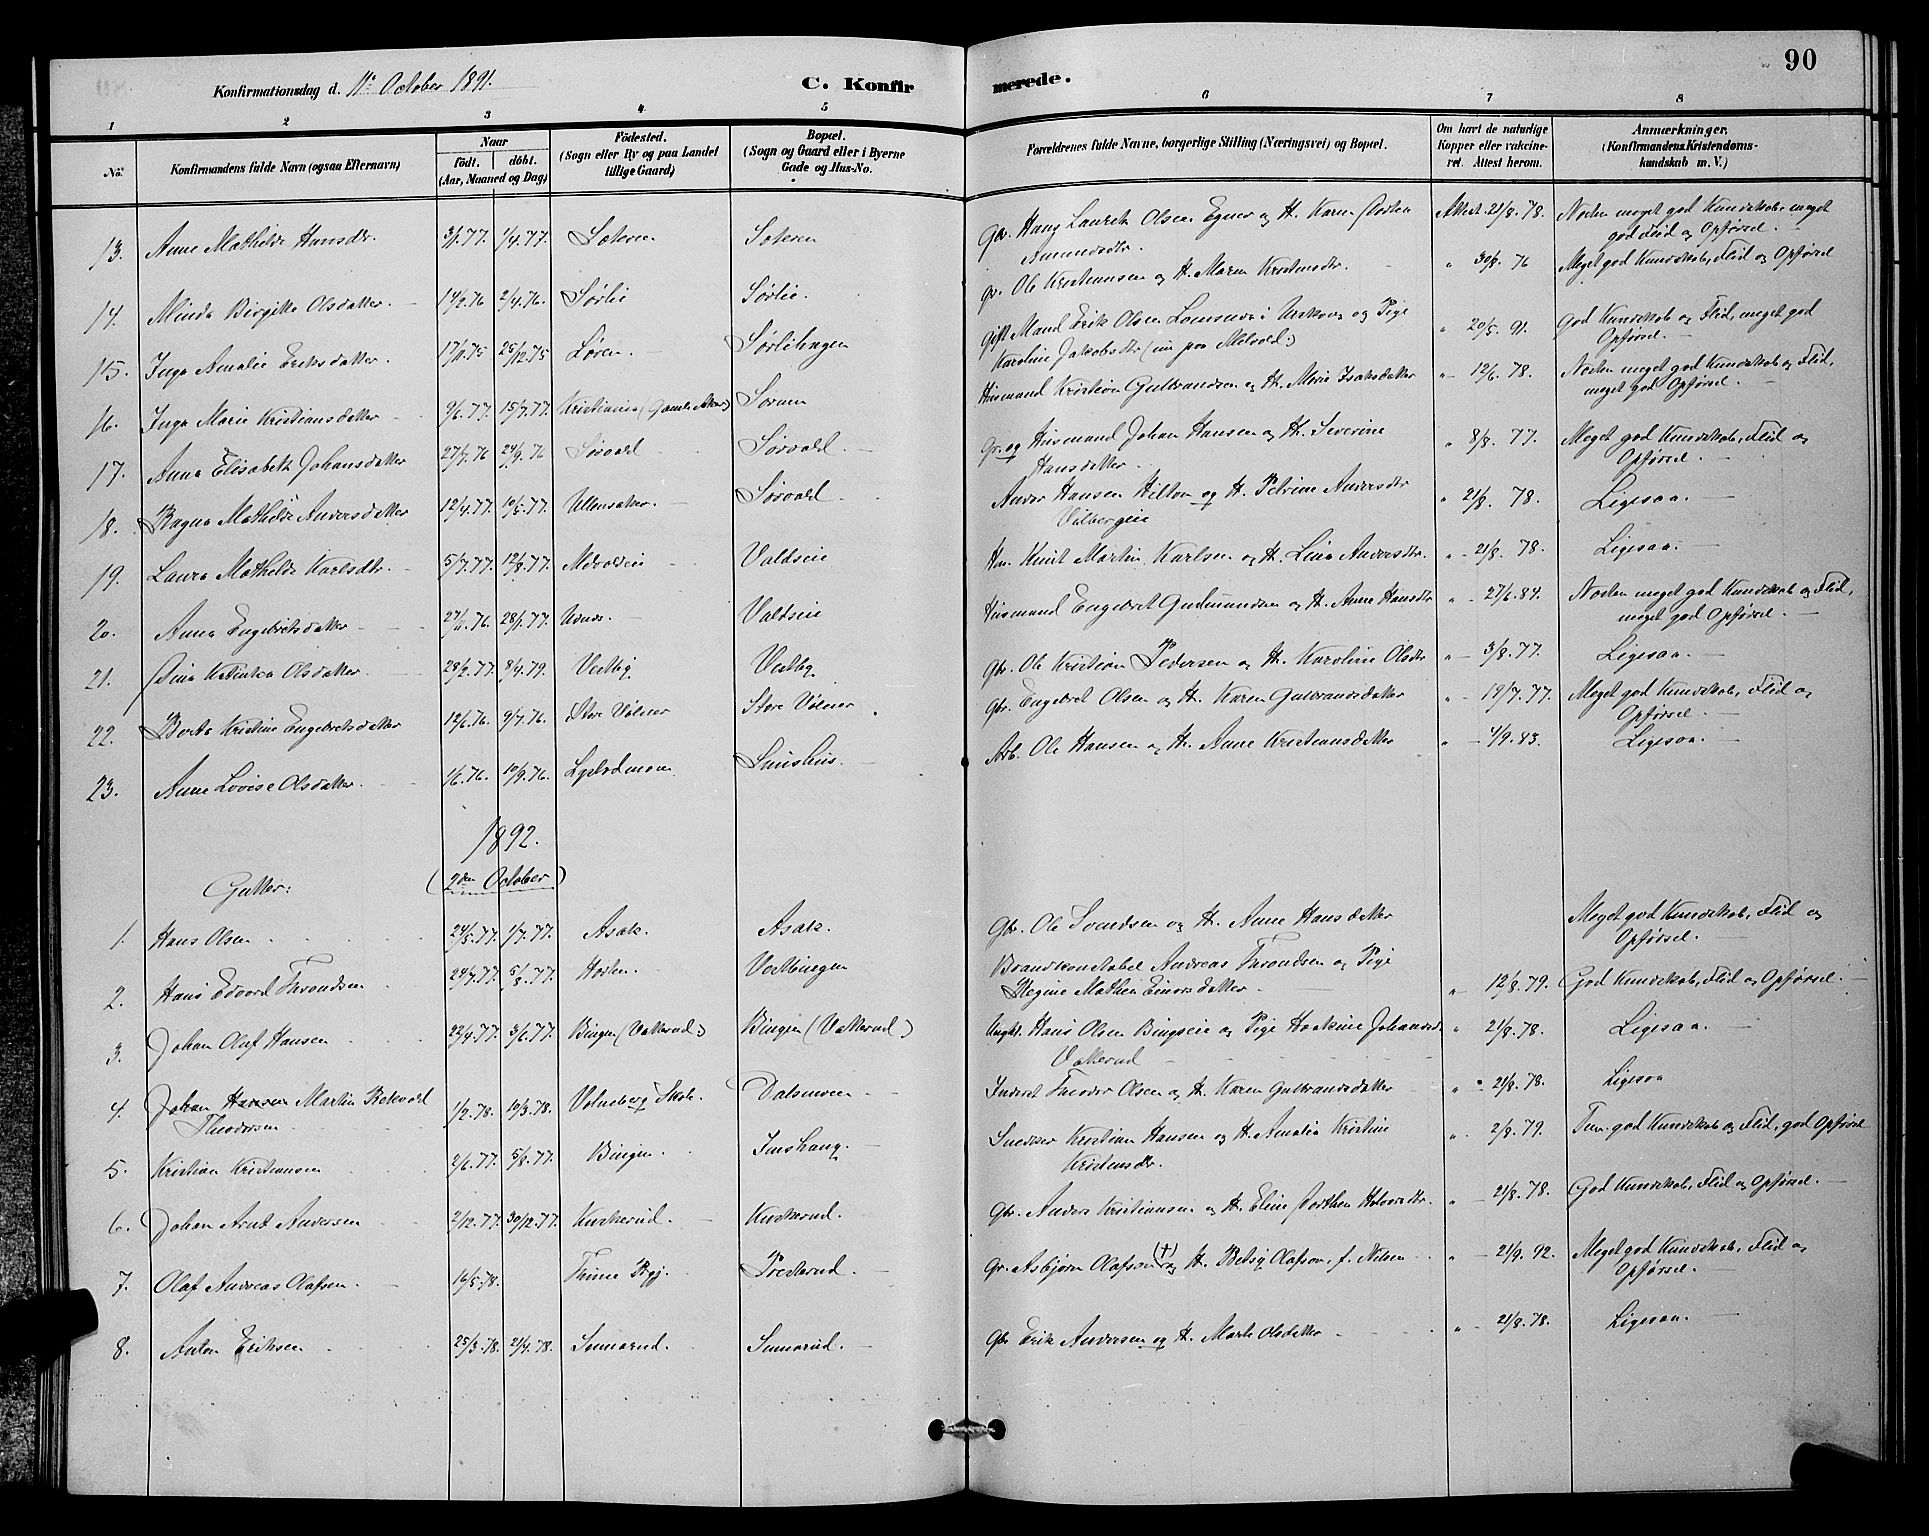 90
Konfirmationsdag d. 11te October 1891. C. Konfirmerede.
1 2 3 4 5 6 7 8
No. Konfirmandens fulde Navn (ogsaa Efternavn) Naar født. døbt. (Aar, Maaned og Dag) Fødested. (Sogn eller By og paa Landet tillige Gaard) Bopæl. (Sogn og Gaard eller i Byerne Gade og Hus-No. Forældrenes fulde Navne, borgerlige Stilling (Næringsvei) og Bopæl. Om havt de naturlige Kopper eller vakcineret. Attest herom. Anmærkninger. (Konfirmandens Kristendomskundskab m. V.)
13. Anne Mathilde Hansdtr. 3/1.77. 1/4.77. Sæteren Sæteren Gbr. Hans Laurits Olsen Egner og H. Karen Dorthea Amundsdtr. Attest. 21/8.78. Næsten meget god Kundskab, meget god Flid og Opførsel.
14. Minda Birgitte Olsdatter 14/2.76 2/4.76. Sørlie Sørlie Gbr. Ole Kristiansen og H. Maren Kristensdtr. " 30/8.76 Meget god Kundskab, Flid og Opførsel
15. Inga Amalie Eriksdatter. 25/12.75 Løren. Sørlihagen Gift Mand Erik Olsen i Urskoug og Pige Karoline Jakobsdtr (nu paa Melvold:) " 20/5.91. God Kundskab og Flid, meget god Opførsel.
16. Inga Marie Kristiansdatter 9/6.77. 15/7.77. Kristiania (Gamle Aker) Sørum Husmand Kristian Gulbrandsen og H. Marie Isaksdatter " 12/6.78. Næsten meget god Kundskab og Flid, meget god Opførsel.
17. Anna Elisabeth Johansdatter 27/7.76 24/9.76 Sørvald Sørvald. Gr. og Husmand Johan Hansen og H. Severine Hansdatter " 8/8.77. Meget god Kundskab, Flid og Opførsel.
18. Ragna Mathilde Andersdatter 12/4.77. 10/5.77. Ullensaker. Sørvald. Anders Hansen Hilton og H. Petrine Andersdtr Vilbergeie " 21/8.78. Ligesaa.
19. Laura Mathilde Karlsdtr. 5/7.77. 12/8.77. Melvoldeie Valdseie Hm. Knut Martin Karlsen og H. Lina Andersdtr. " 21/8.78. Ligesaa.
20. Anna Engebretsdatter 27/11.76. 28/1.77. Valdseie Husmand Engebret Gudmundsen og H. Anne Hansdtr " 27/6.84. Næsten meget god Kundskab og Flid, meget god Opførsel.
21. Dina Katinka Olsdatter 28/2.77. 8/4.79. Vestby Vestby Gbr. Ole Kristian Pedersen og H. Karoline Olsdtr " 3/8.77. Ligesaa.
22. Berta Kristine Engebretsdatter 12/6.76. 9/7.76. Store Vølner Store Vølner Gbr. Engebret Olsen og H. Karen Gulbrandsdatter " 19/7.77. Meget god Kundskab, Flid og Opførsel.
23. Anne Lovise Olsdatter 1/6.76. 10/9.76. Smishus. Arb. Ole Hansen og H. Anne Kristiansdatter " 4/9.83. Ligesaa.
1892.
Gutter: (2den October)
1. Hans Olsen 24/5.77. 1/7.77. Asak. Asak. Gbr. Ole Svendsen og H. Anne Hansdatter Meget god Kundskab, Flid og Opførsel.
2. Hans Edvard Throndsen 24/7.77. 5/8.77. Horten. Brandkonstabel Andreas Throndsen og Pige Regine Mathea Einarsdatter. " 12/8.79. God Kundskab, Flid og Opførsel.
3. Johan Oluf Hansen 22/4.77. 3/6.77. Bingen (Vakkerud:) Bingen (Vakkerud) Ungkl. Hans Olsen Bingseie og Pige Haakine Johansdtr Vakkerud " 21/8.78. Ligesaa.
4. Johan Hansen Martin Bekvold Theodorsen 1/2.78. 10/3.78. Volneberg Skole. Dalsmoen Inderst Theodor Olsen og H. Karen Gulbrandsdatter " 21/8.78. Ligesaa
5. Kristian Kristiansen 2/6.77. 5/8.77. Bingen. Imshaug. Snedker Kristian Hansen og H. Amalia Kristine Kristensdtr. " 2/8.79. Tem. god Kundskab og Flid, god Opførsel
6. Johan Arnt Andersen 2/12.77. 30/12.77. Kuskerud. Kuskerud. Gbr. Anders Kristiansen og H. Eline Dorthea Halvorsdtr. " 21/8.78. God Kundskab, Flid og Opførsel.
7. Olaf Andreas Olafsen 16/5.78. Thime Prgj. Presterud. Gr. Asbjørn Olafson (†) og H. Betsy Olafson, f. Nilsen " 21/9.92. Meget god Kundskab, Flid og Opførsel.
8. Anton Eriksen 25/3.78. 21/4.78. Sennerud. Sennerud. Gbr Erik Andersen og H. Marte Olsdatter " 21/8.78. Ligesaa.